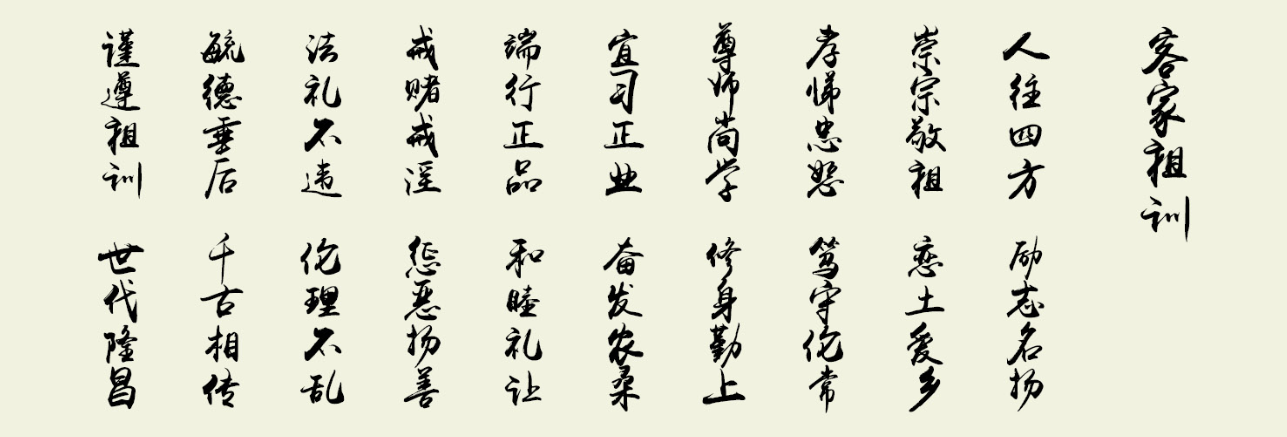 客家祖训
人往四方 励志名扬
崇宗敬祖 恋土爱乡
孝悌忠恕 笃守伦常
尊师尚学 修身勤上
宜习正业 奋发农桑
端行正品 和睦礼让
戒赌戒淫 惩恶扬善
法礼不违 伦理不乱
毓德垂后 千古相传
谨遵祖训 世代隆昌